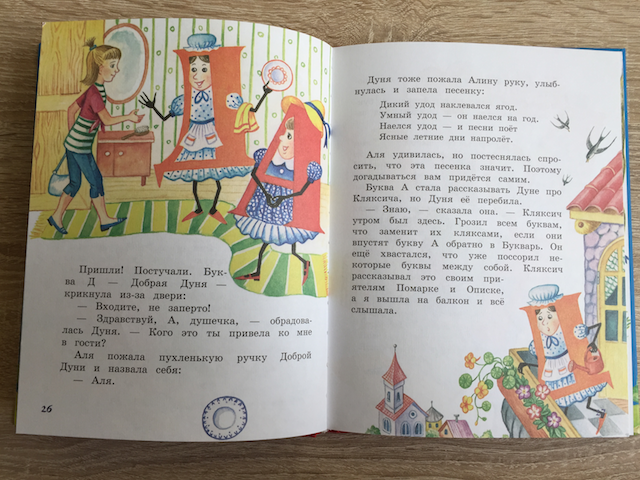 Пришли! Постучали. Бук-
ва Д — Добрая Дуня —
крикнула из-за двери:
— Входите, не заперто!
— Здравствуй, А, душечка, — обрадова-
лась Дуня. — Кого это ты привела ко мне
в гости?
Аля пожала пухленькую ручку Доброй
Дуни и назвала себя:
— Аля.
26
Дуня тоже пожала Алину руку, улыб-
нулась и запела песенку:
Дикий удод наклевался ягод.
Умный удод — он наелся на год.
Наелся удод — и песни поёт
Ясные летние дни напролёт.
Аля удивилась, но постеснялась спро-
сить, что эта песенка значит. Поэтому
догадываться вам придётся самим.
Буква А стала рассказывать Дуне про
Кляксича, но Дуня её перебила.
— Знаю, — сказала она. — Кляксич
утром был здесь. Грозил всем буквам,
что заменит их кляксами, если они
впустят букву А обратно в Букварь. Он
ещё хвастался, что уже поссорил не-
которые буквы между собой. Кляксич
рассказывал это своим при-
ятелям Помарке и Описке,
а я вышла на балкон и всё
слышала.